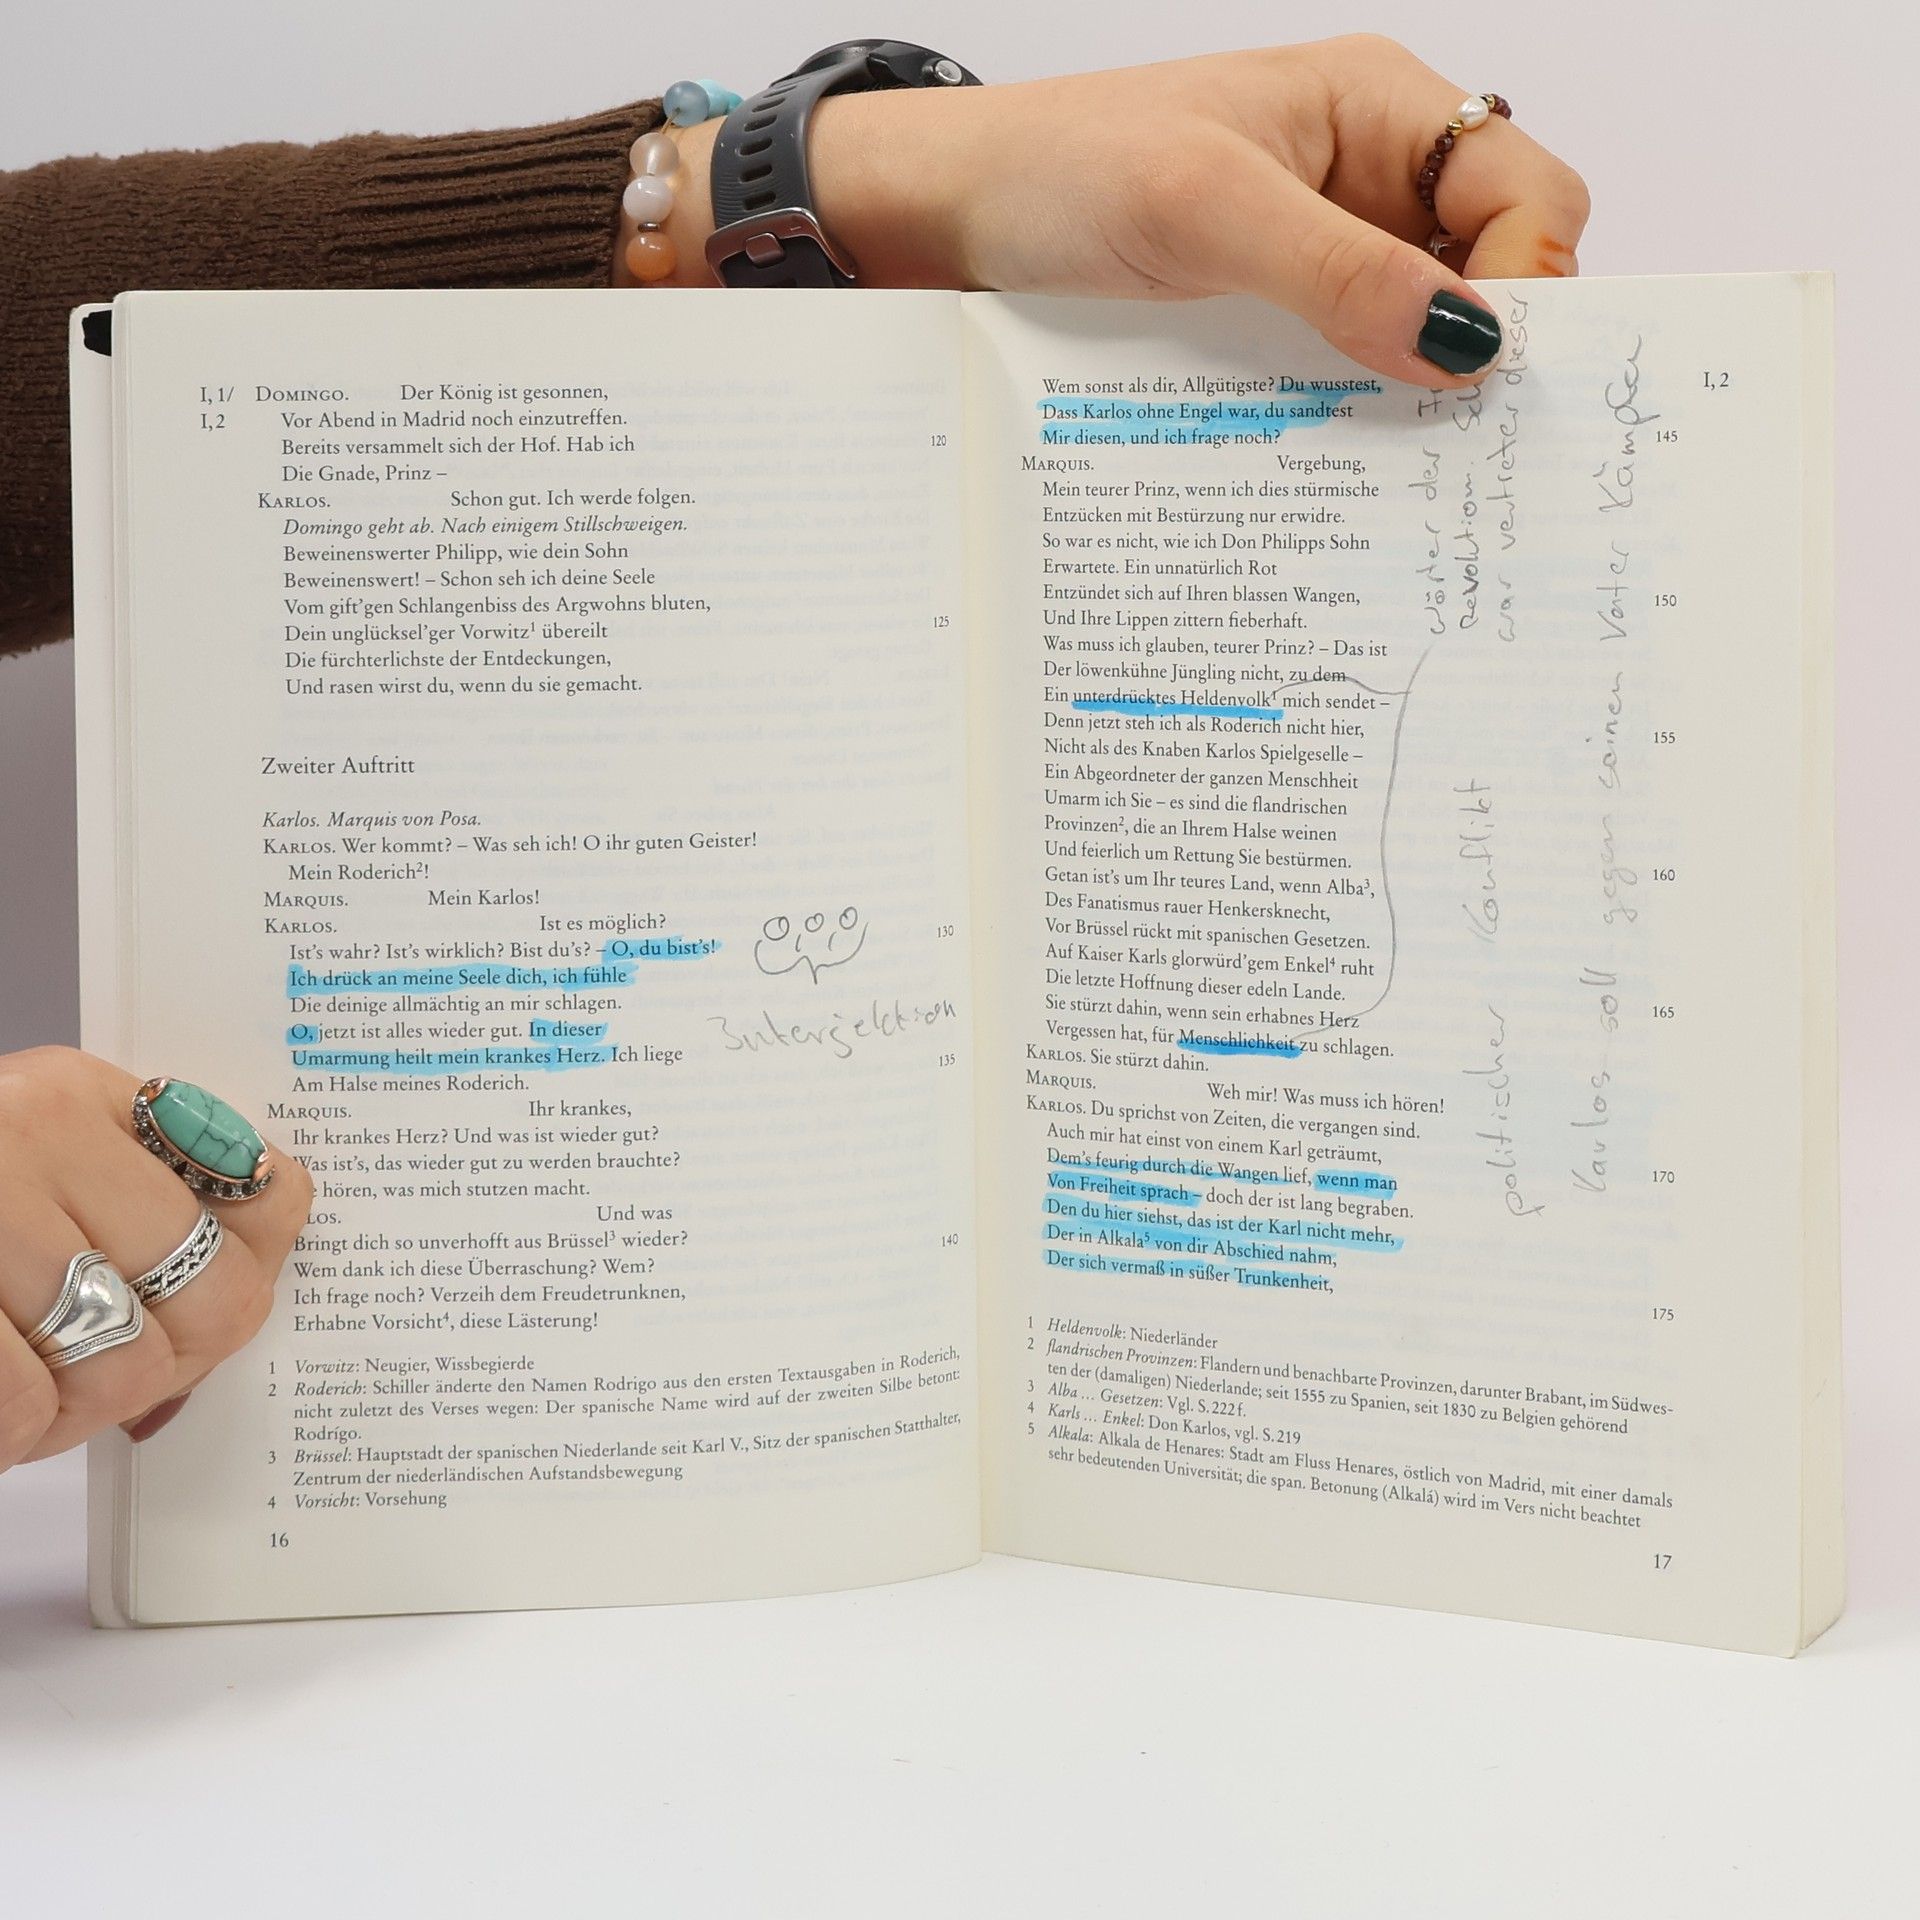 I, 1/ DOMINGO. Der König ist gesonnen,
I, 2 Vor Abend in Madrid noch einzutreffen.
Bereits versammelt sich der Hof. Hab ich 120
Die Gnade, Prinz –
KARLOS. Schon gut. Ich werde folgen.
Domingo geht ab. Nach einigem Stillschweigen.
Beweinenswerter Philipp, wie dein Sohn
Beweinenswert! – Schon seh ich deine Seele
Vom gift'gen Schlangenbiss des Argwohns bluten,
Dein unglücksel'ger Vorwitz¹ übereilt 125
Die fürchterlichste der Entdeckungen,
Und rasen wirst du, wenn du sie gemacht.
Zweiter Auftritt
Karlos. Marquis von Posa.
KARLOS. Wer kommt? – Was seh ich! O ihr guten Geister!
Mein Roderich²!
MARQUIS. Mein Karlos!
KARLOS. Ist es möglich? 130
Ist's wahr? Ist's wirklich? Bist du's? – O, du bist's!
Ich drück an meine Seele dich, ich fühle
Die deinige allmächtig an mir schlagen.
O, jetzt ist alles wieder gut. In dieser
Umarmung heilt mein krankes Herz. Ich liege 135
Am Halse meines Roderich.
MARQUIS. Ihr krankes,
Ihr krankes Herz? Und was ist wieder gut?
Was ist's, das wieder gut zu werden brauchte?
hören, was mich stutzen macht.
LOS. Und was
Bringt dich so unverhofft aus Brüssel³ wieder? 140
Wem dank ich diese Überraschung? Wem?
Ich frage noch? Verzeih dem Freudetrunknen,
Erhabne Vorsicht⁴, diese Lästerung!
Interjektion
1 Vorwitz: Neugier, Wissbegierde
2 Roderich: Schiller änderte den Namen Rodrigo aus den ersten Textausgaben in Roderich,
nicht zuletzt des Verses wegen: Der spanische Name wird auf der zweiten Silbe betont:
Rodrígo.
3 Brüssel: Hauptstadt der spanischen Niederlande seit Karl V., Sitz der spanischen Statthalter,
Zentrum der niederländischen Aufstandsbewegung
4 Vorsicht: Vorsehung
16
Wem sonst als dir, Allgütigste? Du wusstest, I, 2
Dass Karlos ohne Engel war, du sandtest
Mir diesen, und ich frage noch? 145
MARQUIS. Vergebung,
Mein teurer Prinz, wenn ich dies stürmische
Entzücken mit Bestürzung nur erwidre.
So war es nicht, wie ich Don Philipps Sohn
Erwartete. Ein unnatürlich Rot
Entzündet sich auf Ihren blassen Wangen, 150
Und Ihre Lippen zittern fieberhaft.
Was muss ich glauben, teurer Prinz? – Das ist
Der löwenkühne Jüngling nicht, zu dem
Ein unterdrücktes Heldenvolk¹ mich sendet –
Denn jetzt steh ich als Roderich nicht hier, 155
Nicht als des Knaben Karlos Spielgeselle –
Ein Abgeordneter der ganzen Menschheit
Umarm ich Sie – es sind die flandrischen
Provinzen², die an Ihrem Halse weinen
Und feierlich um Rettung Sie bestürmen.
Getan ist's um Ihr teures Land, wenn Alba³, 160
Des Fanatismus rauer Henkersknecht,
Vor Brüssel rückt mit spanischen Gesetzen.
Auf Kaiser Karls glorwürd'gem Enkel⁴ ruht
Die letzte Hoffnung dieser edeln Lande.
Sie stürzt dahin, wenn sein erhabnes Herz 165
Vergessen hat, für Menschlichkeit zu schlagen.
KARLOS. Sie stürzt dahin.
MARQUIS. Weh mir! Was muss ich hören!
KARLOS. Du sprichst von Zeiten, die vergangen sind.
Auch mir hat einst von einem Karl geträumt,
Dem's feurig durch die Wangen lief, wenn man 170
Von Freiheit sprach – doch der ist lang begraben.
Den du hier siehst, das ist der Karl nicht mehr,
Der in Alkala⁵ von dir Abschied nahm,
Der sich vermaß in süßer Trunkenheit,
175
wörter der
Revolution.
war vertreter dieser
politischer Konflikt
Karlos soll gegen seinen Vater Kämpfen
1 Heldenvolk: Niederländer
2 flandrischen Provinzen: Flandern und benachbarte Provinzen, darunter Brabant, im Südwes-
ten der (damaligen) Niederlande; seit 1555 zu Spanien, seit 1830 zu Belgien gehörend
3 Alba ... Gesetzen: Vgl. S. 222 f.
4 Karls ... Enkel: Don Karlos, vgl. S. 219
5 Alkala: Alkala de Henares: Stadt am Fluss Henares, östlich von Madrid, mit einer damals
sehr bedeutenden Universität; die span. Betonung (Alkalá) wird im Vers nicht beachtet
17